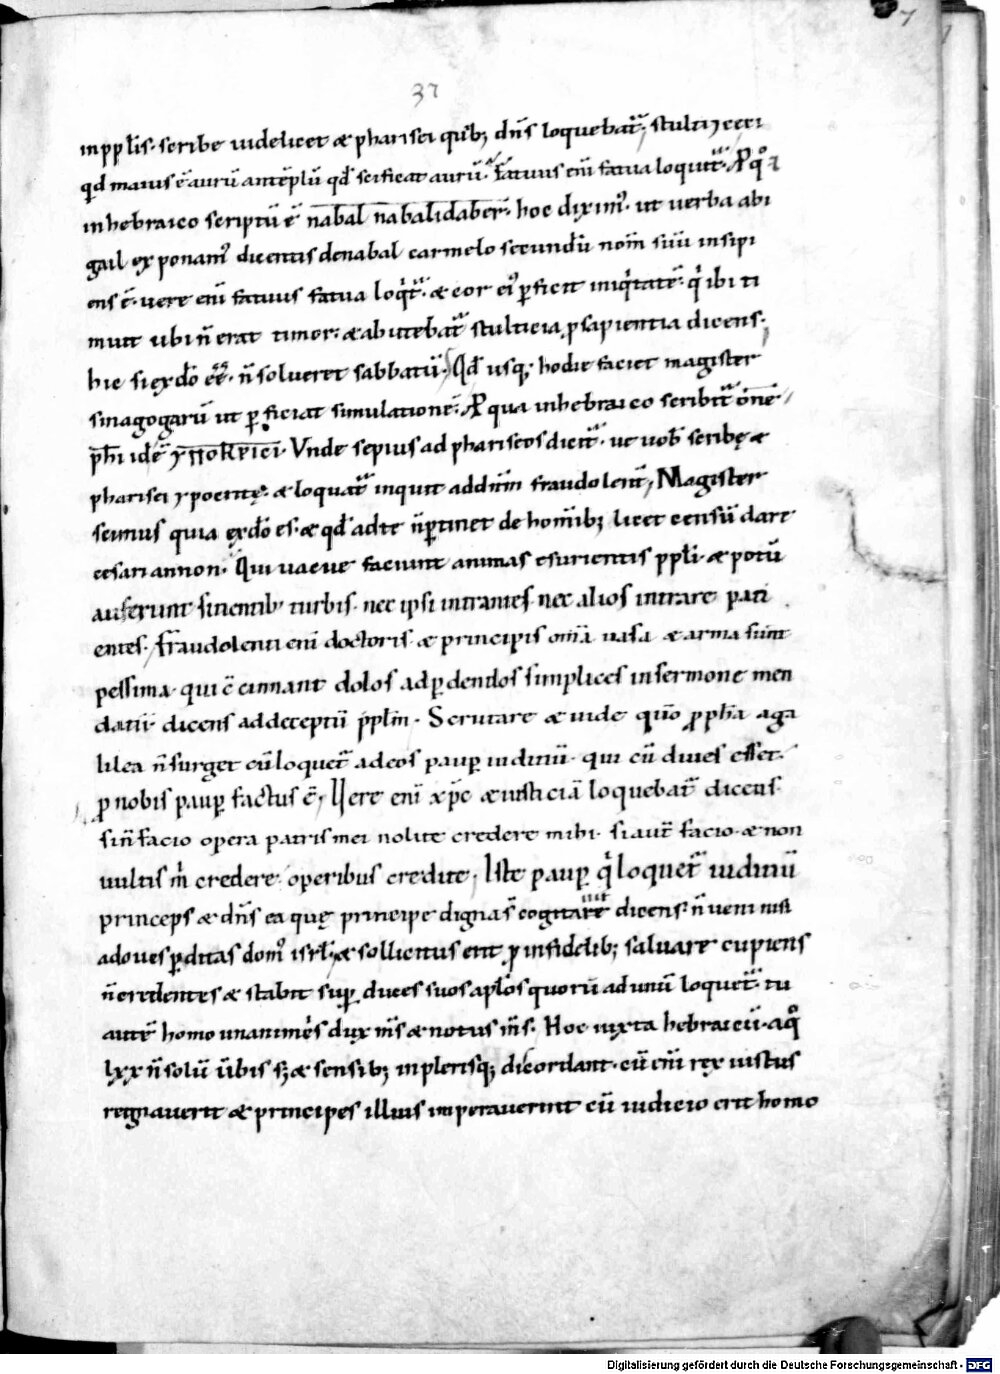 37
7
inpplis· scribe uidelicet & pharisei quib; dn̄s loquebat᷑· stulti ⁊ ceci
qd̄ maius ē aurū an tēplū qd̄ scificat aurū· Fatuus eni fatua loquit᷑·
inhebraico scriptū ē nabal nabalidaber· hoc diximꝰ· ut uerba abi
gail exponamꝰ dicentis denabal carmelo secundū nom̄ suū insipi
ens ē· uere eni fatuus fatua loqt᷑· & cor eiꝰ ꝑficit iniqtatē· qi ibi ti
muit ubi n̄ erat timor· & abutebat᷑ stulticia ꝓ sapientia dicens·
hic si exdō eēt· n̄ solueret sabbatū· Qd̄ usq; hodie faciet magister
sinagogarū ut ꝑficiat simulationē· qua inhebraico scribit᷑ onē
phi idē ⲩποκριϲι· Vnde sepius ad phariseos dicit᷑· ue uob scribę &
pharisei ypocritę· & loquat᷑ inquit addn̄m fraudolent᷑, Magister
scimus quia exdō es· & qd̄ adte n̄ ꝑtinet de homīb; licet censū dare
cesari annon· Qui uacue faciunt animas esurientis ppli· & potū
auferunt sitientib; turbis· nec ipsi intrantes· nec alios intrare pati
entes· fraudolenti eni doctoris & principis omīa uasa & arma sunt
pessima· qui c̄cinnant dolos adꝑdendos simplices insermone men
datii· dicens addeceptū pplm̄· Scrutare & uide qūo ꝓpha aga
lilea n̄ surget cū loquet᷑ adeos pauꝑ iudiciū· qui cū diues esset·
ꝓ nobis pauꝑ factus ē, Uere eni xp̄c & iusticiā loquebat᷑ dicens·
sin̄ facio opera patris mei nolite credere mihi· si aut̄ facio· & non
uultis m̄ credere· operibus credite, Iste pauꝑ qi loquet᷑ iudiciū
princeps & dn̄s ea quę principe digna s̄ cogitare dicens· n̄ ueni nisi
adoues ꝑditas domꝰ isrl̄· & sollicitus erit ꝓ infidelib; saluare cupiens
n̄ credentes & stabit suꝑ duces suos aplos quorū adunū loquet᷑· tu
autē homo unanimis dux m̄s & notus m̄s· Hoc iuxta hebraicū· aq̊
lxx n̄ solū ūbis s; & sensib; inplerisq; discordant· cū eni rex iustus
regnauerit & principes illius imperauerint cū iudicio erit homo
Digitalisierung gefördert durch die Deutsche Forschungsgemeinschaft - DFG